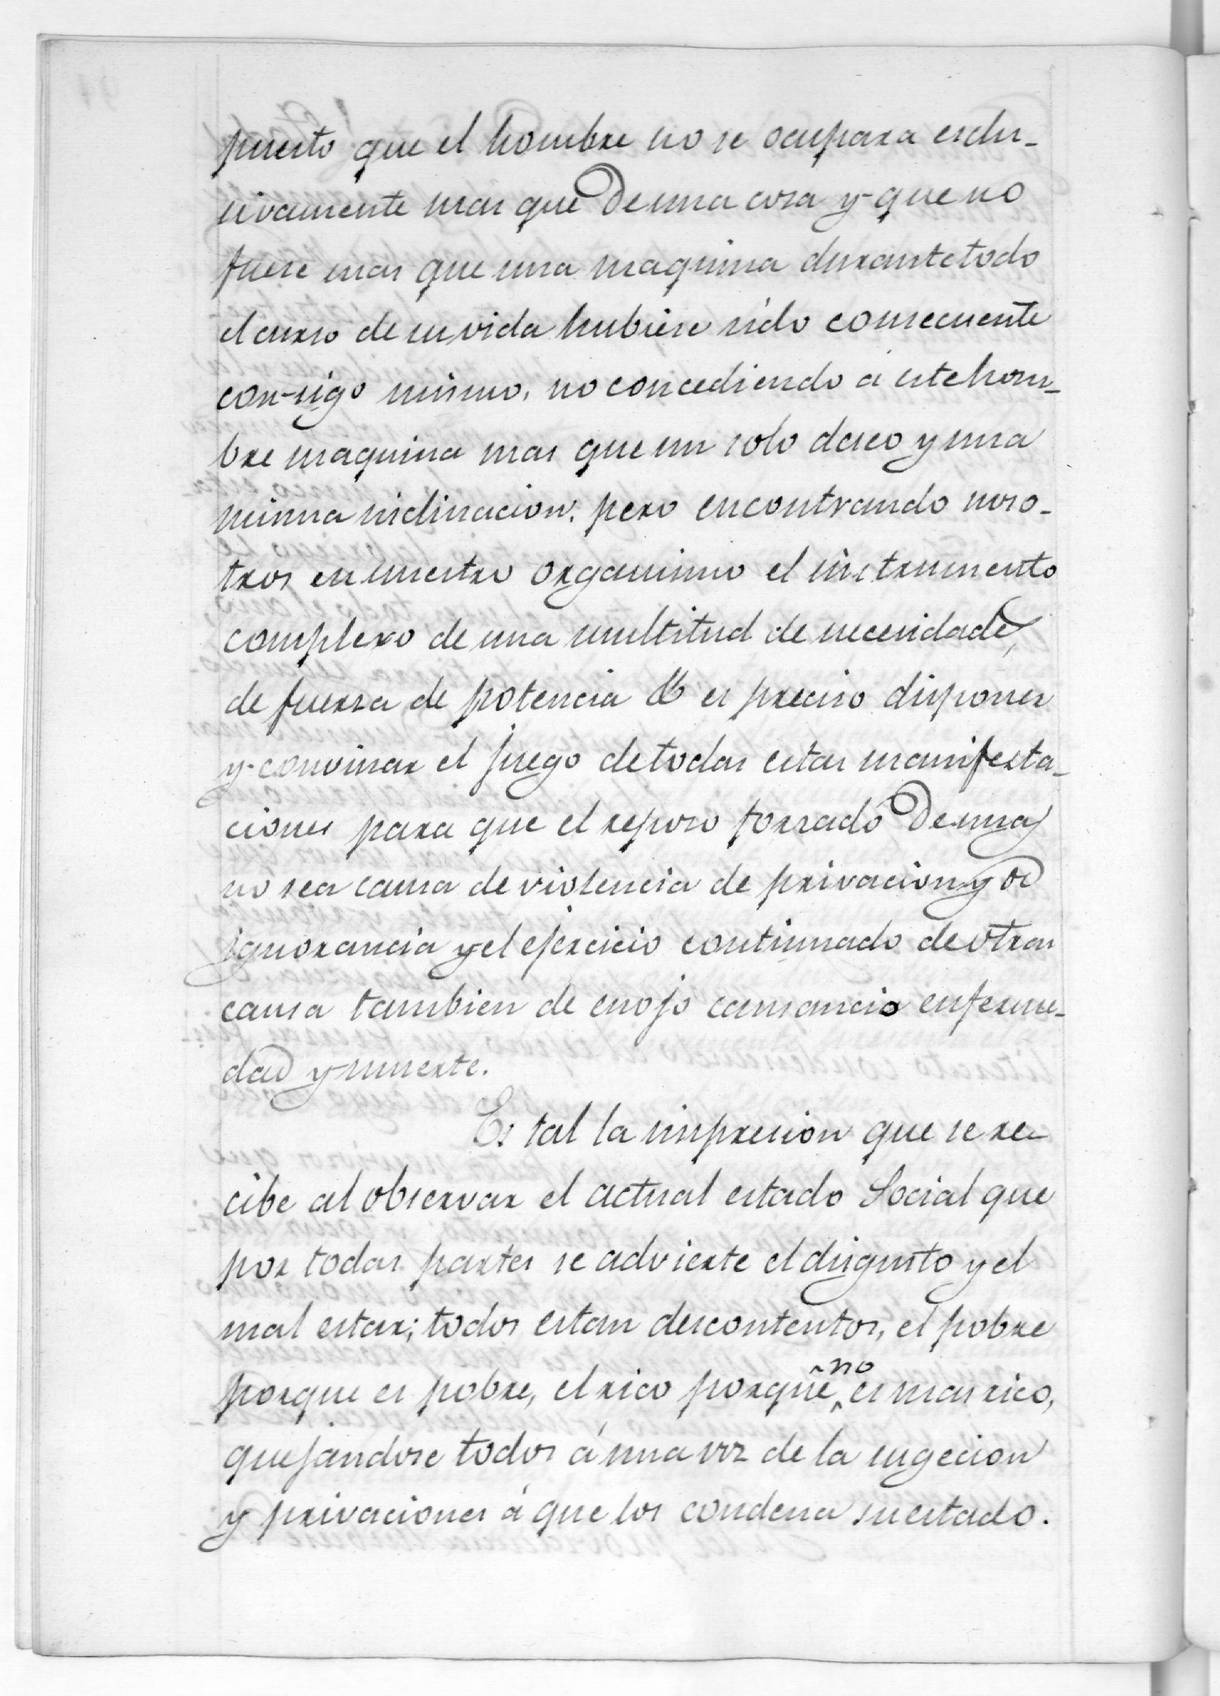 puesto que el hombre no se ocupara esclu-
sivamente mas que de una cosa y que no
fuese mas que una maquina durante todo
el curso de su vida hubiese sido consecuente
con-sigo mismo, no concediendo á este hom-
bre maquina mas que un solo deseo y una
misma inclinacion; pero encontrando noso-
tros en nuestro organismo el instrumento
complexo de una multitud de necesidades,
de fuerza de potencia &ª es preciso disponer
y convinar el juego de todas estas manifesta-
ciones para que el reposo forzado de una
no sea causa de violencia de privacion y de
ignorancia y el ejercicio continuado de otras
causa tambien de enojo cansancio enferme-
dad y muerte.
Es tal la impresion que se re-
cibe al observar el actual estado Social que
por todas partes se advierte el disgusto y el
mal estar; todos estan descontentos, el pobre
porque es pobre, el rico porque no es mas rico,
quejandose todos á una voz de la sugecion
y privaciones á que los condena su estado.